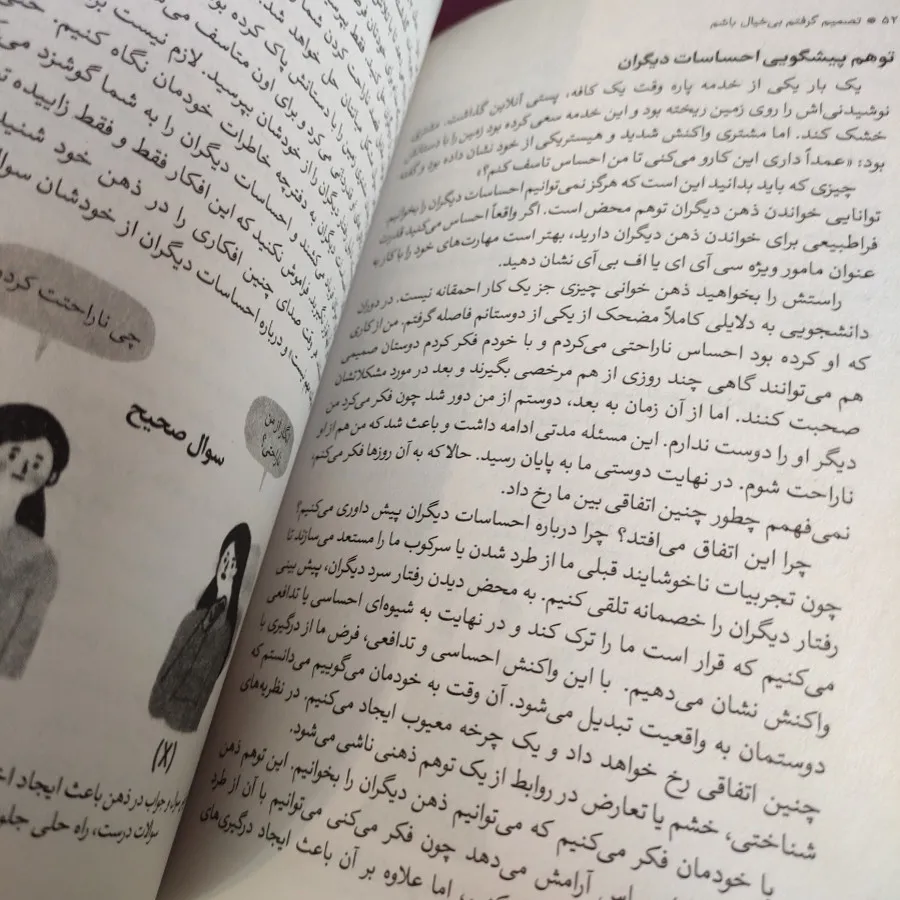 ۵۲ * تصمیم گرفتم بی‌خیال باشم
توهم پیشگویی احساسات دیگران
یک بار یکی از خدمه پاره وقت یک کافه، پستی آنلاین گذاشت. مشتری
نوشیدنی‌اش را روی زمین ریخته بود و این خدمه سعی کرده بود زمین را با دستانش
خشک کند. اما مشتری واکنش شدید و هیستریکی از خود نشان داده بود و گفته
بود: «عمداً داری این کارو می‌کنی تا من احساس تاسف کنم؟»
چیزی که باید بدانید این است که هرگز نمی‌توانیم احساسات دیگران را بخوانیم
توانایی خواندن ذهن دیگران توهم محض است. اگر واقعاً احساس می‌کنید قدرت
فراطبیعی برای خواندن ذهن دیگران دارید، بهتر است مهارت‌های خود را با کار به
عنوان مامور ویژه سی آی ای یا اف بی آی نشان دهید.
راستش را بخواهید ذهن خوانی چیزی جز یک کار احمقانه نیست. در دوران
دانشجویی به دلایلی کاملاً مضحک از یکی از دوستانم فاصله گرفتم. من از کاری
که او کرده بود احساس ناراحتی می‌کردم و با خودم فکر کردم دوستان صمیمی
هم می‌توانند گاهی چند روزی از هم مرخصی بگیرند و بعد در مورد مشکلاتشان
صحبت کنند. اما از آن زمان به بعد، دوستم از من دور شد چون فکر می‌کرد من
دیگر او را دوست ندارم. این مسئله مدتی ادامه داشت و باعث شد که من هم از او
ناراحت شوم. در نهایت دوستی ما به پایان رسید. حالا که به آن روزها فکر می‌کنم،
نمی‌فهمم چطور چنین اتفاقی بین ما رخ داد.
چرا این اتفاق می‌افتد؟ چرا درباره احساسات دیگران پیش داوری می‌کنیم؟
چون تجربیات ناخوشایند قبلی ما از طرد شدن یا سرکوب ما را مستعد می‌سازند تا
رفتار دیگران را خصمانه تلقی کنیم. به محض دیدن رفتار سرد دیگران، پیش بینی
می‌کنیم که قرار است ما را ترک کند و در نهایت به شیوه‌ای احساسی یا تدافعی
واکنش نشان می‌دهیم. با این واکنش احساسی و تدافعی، فرض ما از درگیری با
دوستمان به واقعیت تبدیل می‌شود. آن وقت به خودمان می‌گوییم می‌دانستم که
چنین اتفاقی رخ خواهد داد و یک چرخه معیوب ایجاد می‌کنیم. در نظریه‌های
شناختی، خشم یا تعارض در روابط از یک توهم ذهنی ناشی می‌شود.
با خودمان فکر می‌کنیم که می‌توانیم ذهن دیگران را بخوانیم. این توهم ذهن
آرامش می‌دهد چون فکر می‌کنی می‌توانیم با آن از طرد
اما علاوه بر آن باعث ایجاد درگیری‌های
حل خواهد شد.
را با دستانش پاک کرده بو
می‌کرد و برای اون متاسف می
را از خودشان بپرسید. لازم نیست بر
به دفترچه خاطرات خودمان نگاه کنیم.
و احساسات دیگران را به شما گوشزد می‌ک
فراموش نکنید که این افکار فقط و فقط زاییده
صدای چنین افکاری را در ذهن خود شنید
و درباره احساسات دیگران از خودشان سوال
چی ناراحتت کرده
سوال صحیح
از من
(X)
و جواب در ذهن باعث ایجاد
سولات درست، راه حلی جلو